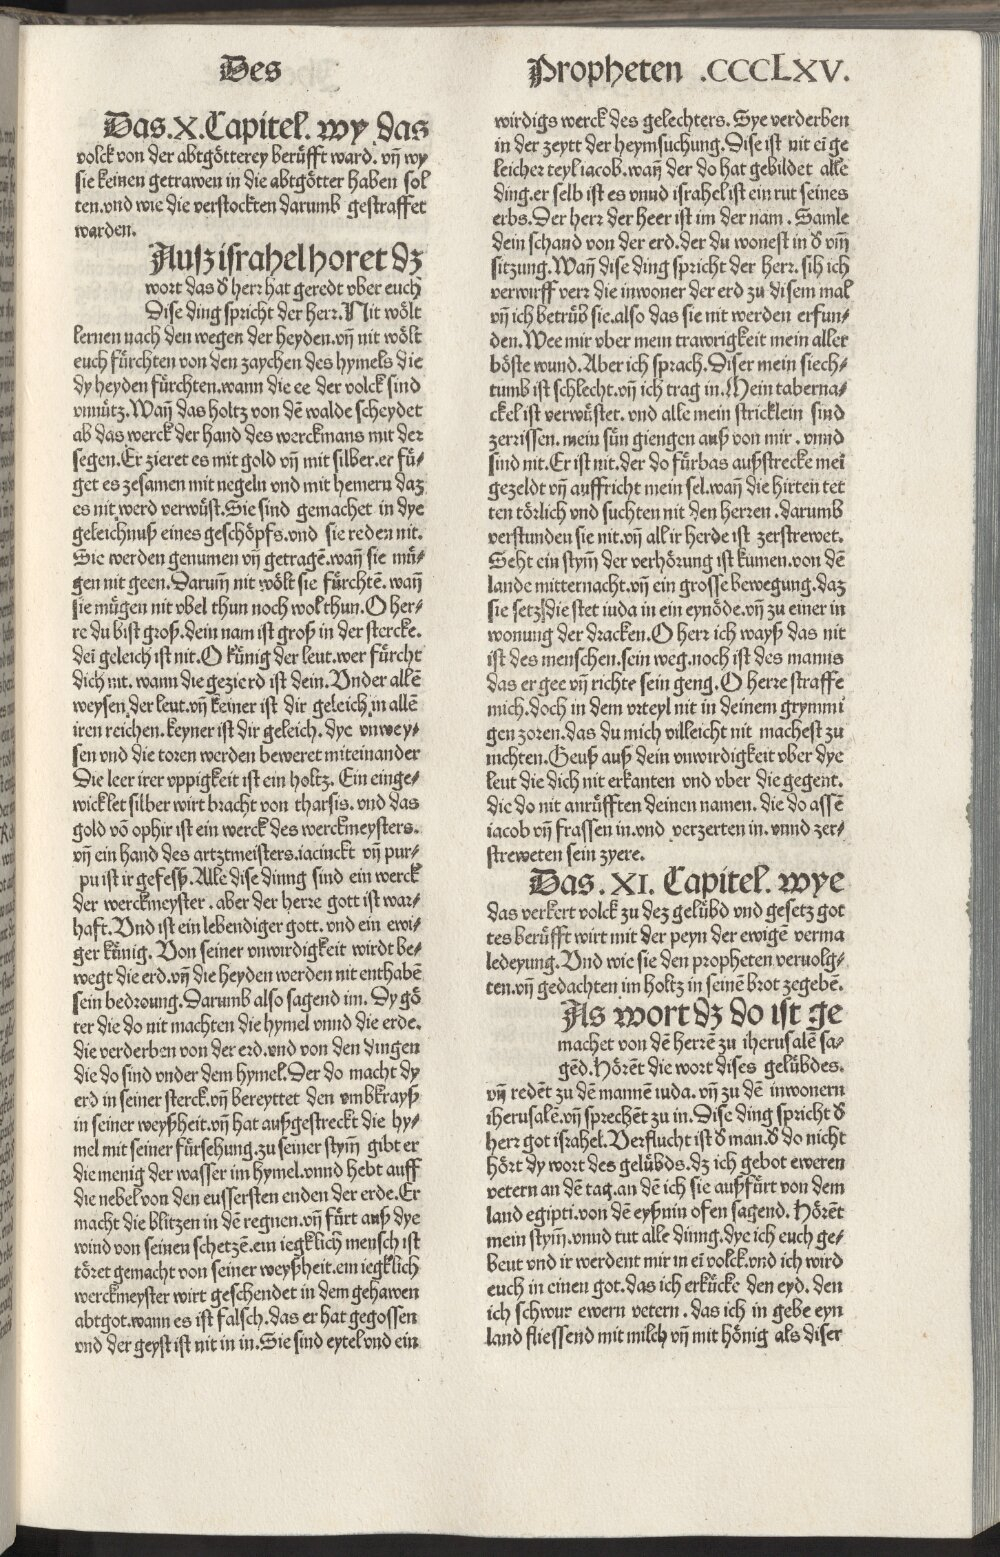 Des
Propheten .CCCLXV.
Das.X.Capitel. wy das
volck von der abtgötterey berüfft ward. vñ wy
sie keinen getrawen in die abtgötter haben sol
ten.vnd wie die verstockten darumb gestraffet
warden.
Auſz iſrahel horet dz
wort das d herr hat geredt vber euch
Dise ding spricht der herr. Nit wölt
lernen nach den wegen der heyden.vñ nit wölt
euch fürchten von den zaychen des hymels die
dy heyden fürchten.wann die ee der volck sind
vnnütz.Wañ das holtz von dē walde scheydet
ab das werck der hand des werckmans mit der
segen.Er zieret es mit gold vñ mit silber.er fü⸗
get es zesamen mit negeln vnd mit hemern daz
es nit werd verwüst.Sie sind gemachet in dye
geleichnuß eines geschöpfs.vnd sie reden nit.
Sie werden genumen vñ getragē.wañ sie mü⸗
gen nit geen.Darum̄ nit wölt sie fürchtē.wañ
sie mügen nit vbel thun noch wol thun.O her⸗
re du bist groß.dein nam ist groß in der stercke.
dei geleich ist nit.O künig der leut.wer fürcht
dich nit. wann die gezierd ist dein.Vnder allē
weysen der leut.vñ keiner ist dir geleich in allē
iren reichen.keyner ist dir geleich. dye vnwey⸗
sen vnd die toren werden beweret miteinander
Die leer irer vppigkeit ist ein holtz. Ein einge⸗
wicklet silber wirt bracht von tharsis. vnd das
gold vō ophir ist ein werck des werckmeysters.
vñ ein hand des artztmeisters.iacinckt vñ pur⸗
pu ist ir gefeß. Alle dise dinng sind ein werck
der werckmeyster . aber der herre gott ist war⸗
haft.Vnd ist ein lebendiger gott. vnd ein ewi⸗
ger künig. Von seiner vnwirdigkeit wirdt be⸗
wegt die erd.vñ die heyden werden nit enthabē
sein bedroung.Darumb also sagend im. Dy gö
ter die do nit machten die hymel vnnd die erde.
die verderben von der erd.vnd von den dingen
die do sind vnder dem hymel.Der do macht dy
erd in seiner sterck.vñ bereyttet den vmbkrayß
in seiner weyßheit.vñ hat außgestreckt die hy⸗
mel mit seiner fürsehung.zu seiner stym̄ gibt er
die menig der wasser im hymel.vnnd hebt auff
die nebel von den eussersten enden der erde.Er
macht die blitzen in dē regnen.vñ fürt auß dye
wind von seinen schetzē.ein iegklich mensch ist
töret gemacht von seiner weyßheit.ein iegklich
werckmeyster wirt geschendet in dem gehawen
abtgot.wann es ist falsch.das er hat gegossen
vnd der geyst ist nit in in.Sie sind eytel vnd ein
wirdigs werck des gelechters. Sye verderben
in der zeytt der heymsuchung.Dise ist nit eī ge
leicher teyl iacob.wañ der do hat gebildet alle
ding.er selb ist es vnnd israhel ist ein rut seines
erbs.Der herr der heer ist im der nam . Samle
dein schand von der erd.der du wonest in d vm̄
sitzung.Wañ dise ding spricht der herr. sih ich
verwurff verr die inwoner der erd zu disem mal
vñ ich betrüb sie.also das sie nit werden erfun⸗
den.Wee mir vber mein trawrigkeit mein aller
böste wund.Aber ich sprach.Diser mein siech⸗
tumb ist schlecht.vñ ich trag in.Mein taberna⸗
ckel ist verwüstet. vnd alle mein stricklein sind
zerrissen. mein sün giengen auß von mir . vnnd
sind nit.Er ist nit.der do fürbas außstrecke mei
gezeldt vñ auffricht mein fel.wañ die hirten tet
ten törlich vnd suchten nit den herren .darumb
verstunden sie nit.vñ all ir herde ist zerstrewet.
Seht ein stym̄ der verhörung ist kumen.von dē
lande mitternacht.vñ ein grosse bewegung.daz
sie setz die stet iuda in ein eynöde.vñ zu einer in
wonung der dracken.O herr ich wayß das nit
ist des menschen.sein weg.noch ist des manns
das er gee vñ richte sein geng.O herre straffe
mich.doch in dem vrteyl nit in deinem grymmi
gen zoren.das du mich villeicht nit machest zu
nichten.Geuß auß dein vnwirdigkeit vber dye
leut die dich nit erkanten vnd vber die gegent.
die do nit anrüfften deinen namen. die do assē
iacob vñ frassen in.vnd verzerten in. vnnd zer⸗
streweten sein zyere.
Das. XI. Capitel. wye
das verkert volck zu dez gelübd vnd gesetz got
tes berüfft wirt mit der peyn der ewigē verma
ledeyung.Vnd wie sie den propheten vervolg⸗
ten.vñ gedachten im holtz in seinē brot zegebē.
As wort dz do ist ge
machet von dē herrē zu iherusalē sa⸗
gēd.Hörēt die wort dises gelübdes.
vñ redēt zu dē mannē iuda. vñ zu dē inwonern
iherusalē.vñ sprechēt zu in. Dise ding spricht d
herr got israhel. Verflucht ist d man.d do nicht
hört dy wort des gelübds.dz ich gebot eweren
vetern an dē tag.an dē ich sie außfürt von dem
land egipti.von dē eyßnin ofen sagend. Hörēt
mein stym̄.vnnd tut alle dinng.dye ich euch ge⸗
beut vnd ir werdent mir in eī volck.vnd ich wird
euch in einen got.das ich erkücke den eyd. den
ich schwur ewern vetern . das ich in gebe eyn
land fliessend mit milch vñ mit hönig als diser